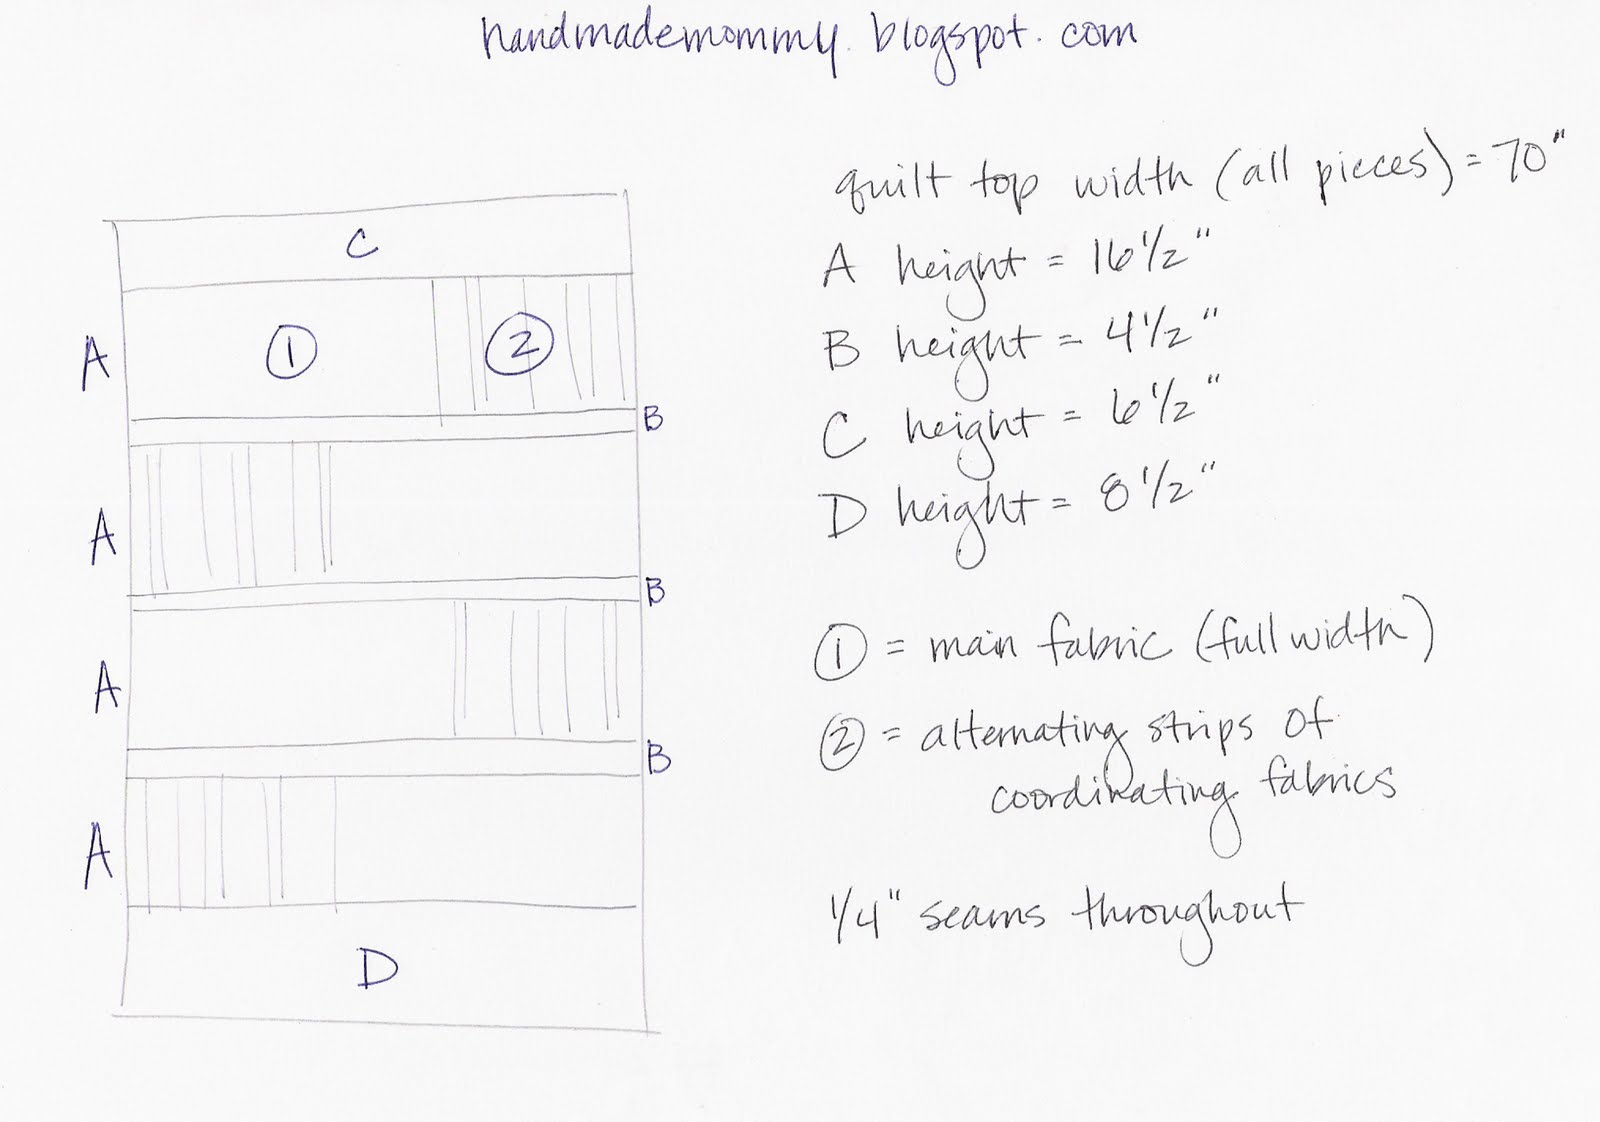 handmademommy.blogspot.com
quilt top width (all pieces) = 70"
A height = 16 1/2"
B height = 4 1/2"
C height = 6 1/2"
D height = 8 1/2"
① = main fabric (full width)
② = alternating strips of
coordinating fabrics
1/4" seams throughout
C
A
①
②
B
A
B
A
B
A
D